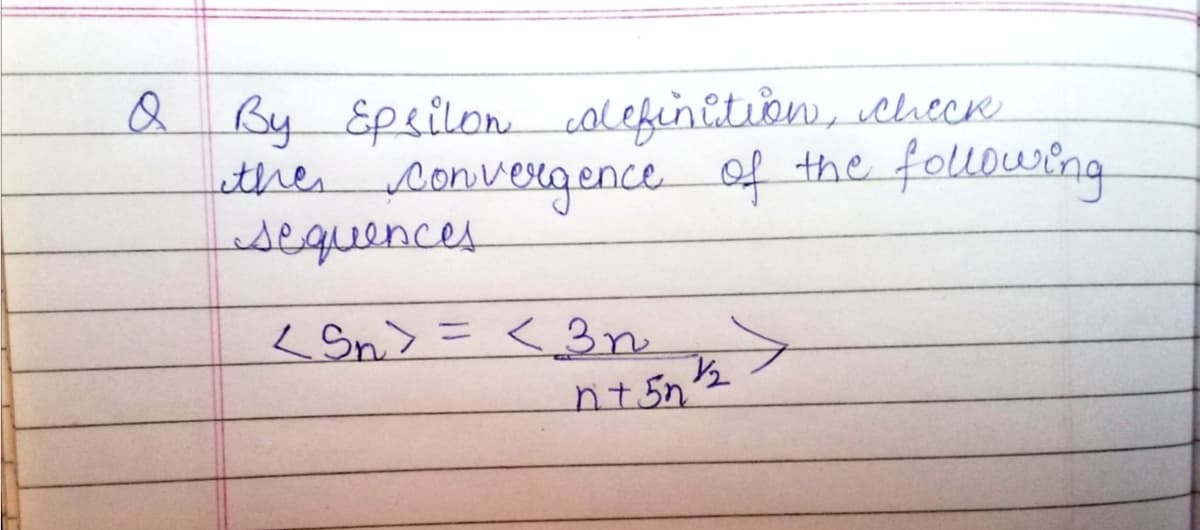 Q By Epsilon definition, check
the convergence of the following
sequences
<Sn> = < 3n
n+5n^1/2 >